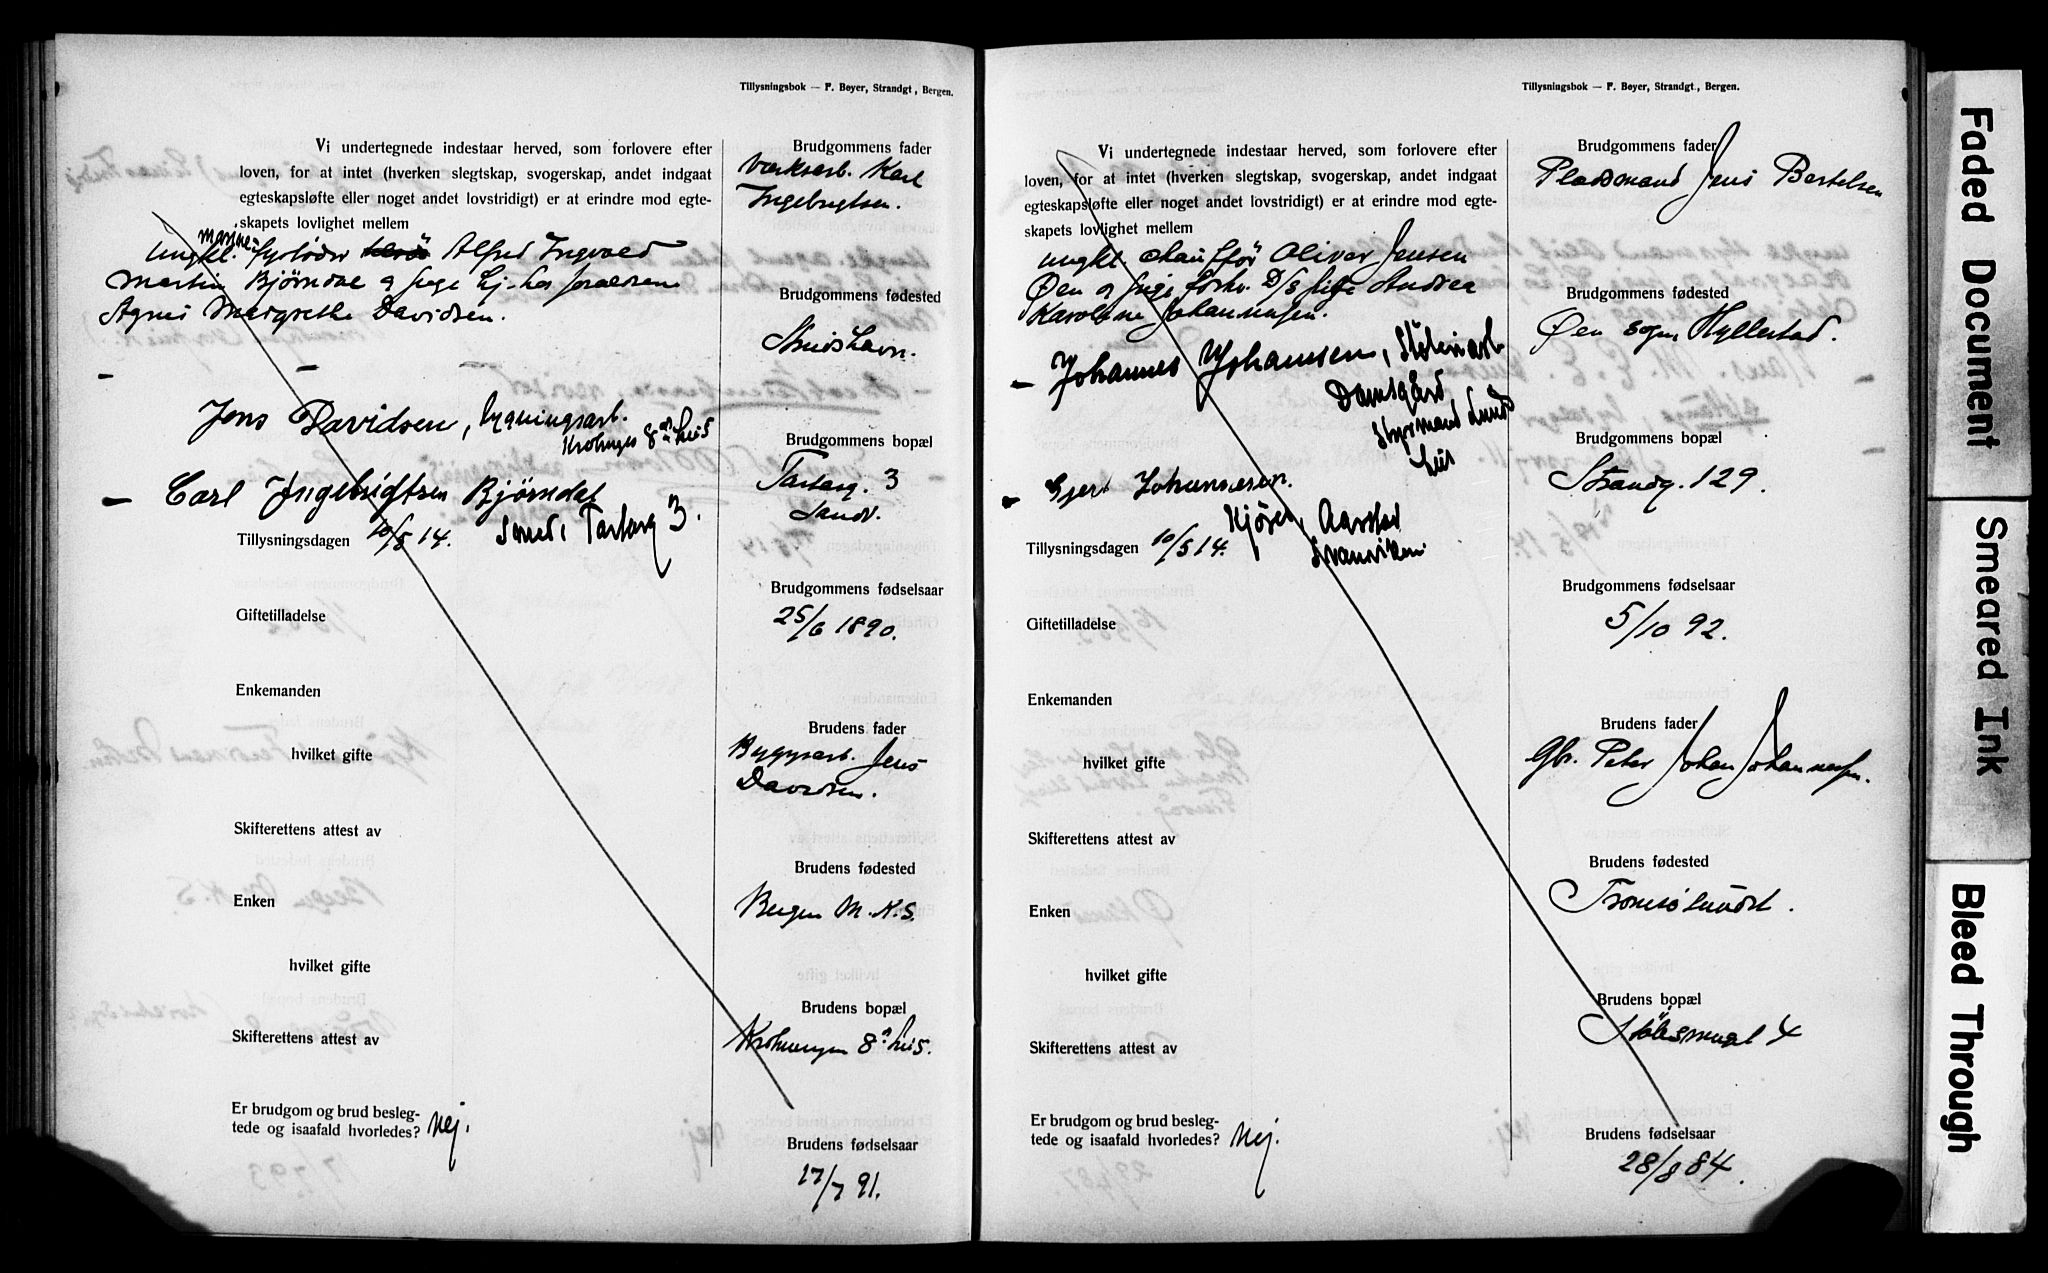 Tillysningsbok — F. Beyer, Strandgt, Bergen.
Vi undertegnede indestaar herved, som forlovere efter
loven, for at intet (hverken slegtskap, svogerskap, andet indgaat
egteskapsløfte eller noget andet lovstridigt) er at erindre mod egte-
skapets lovlighet mellem
marine-
ungk. fyrbøder Alfred Ingvald
Martin Bjørndal og pige hj. hos foreldrene
Agnes Margrethe Davidsen.
Jens Davidsen, bygningsarb.
8 a hus
Carl Ingebrigtsen Bjørndal
Smed, Tartarg 3.
Tillysningsdagen 10/5 14.
Giftetilladelse
Enkemanden
hvilket gifte
Skifterettens attest av
Enken
hvilket gifte
Skifterettens attest av
Er brudgom og brud besleg-
tede og isaafald hvorledes? Nej.
Brudgommens fader
Værksarb. Karl
Ingebrigtsen.
Brudgommens fødested
Brudgommens bopæl
Tartarg. 3
Sandv.
Brudgommens fødselsaar
25/6 1890.
Brudens fader
Byggarb. Jens
Davidsen.
Brudens fødested
Bergen M. K. S.
Brudens bopæl
8 a hus.
Brudens fødselsaar
17/7 91.
Tillysningsbok — F. Beyer, Strandgt., Bergen.
Vi undertegnede indestaar herved, som forlovere efter
loven, for at intet (hverken slegtskap, svogerskap, andet indgaat
egteskapsløfte eller noget andet lovstridigt) er at erindre mod egte-
skapets lovlighet mellem
ungk. chauffør Oliver Jensen
Øen og pige forhv. D/S pige Andrea
Karoline Johannessen.
Johannes Johansen, Støberiarb
Damsgård
Styrmand Lunds
hus
Gjert Johannesen.
Kjøren, Aarstad
Svanviken
Tillysningsdagen 10/5 14.
Giftetilladelse
Enkemanden
hvilket gifte
Skifterettens attest av
Enken
hvilket gifte
Skifterettens attest av
Er brudgom og brud besleg-
tede og isaafald hvorledes? Nej.
Brudgommens fader
Pladsmand Jens Bertelsen
Brudgommens fødested
Øen sogn, Hyllestad.
Brudgommens bopæl
Strandg. 129.
Brudgommens fødselsaar
5/10 92.
Brudens fader
Gbr. Peter Johan Johannessen.
Brudens fødested
Tromsøsundet.
Brudens bopæl
Stølesmugt 4
Brudens fødselsaar
28/8 84.
Faded Document
Smeared Ink
Bleed Through